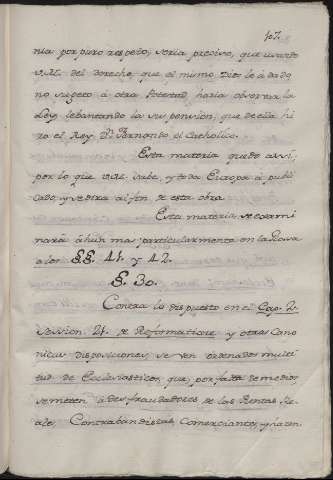 107.
nia por puro respeto, seria preciso, que usando
V.M. del derecho, que el mismo Dios le á dado
no sugeto á otra Potestad, haria observar la
Ley, lebantando la suspension, que de ella hi
zo el Rey Dn. Fernando el Catholico.
Esta materia quedo assi,
por lo que V.M. sabe, y toda Europa á publi
cado, y se dira al fin de esta obra.
Esta materia se exami
nará áhun mas particularmente en la Prova
a los §§. 41. y 42.
§. 30.
Contra lo dispuesto en el Cap. 2.
session 21. de Reformatione y otras Cano
nicas disposiciones, se ven órdenados multi
tud de Ecclesiasticos, que por falta de medios
se meten á desfraudadores de las Rentas Re
ales, Contrabandistas, Comerciantes, y hacen